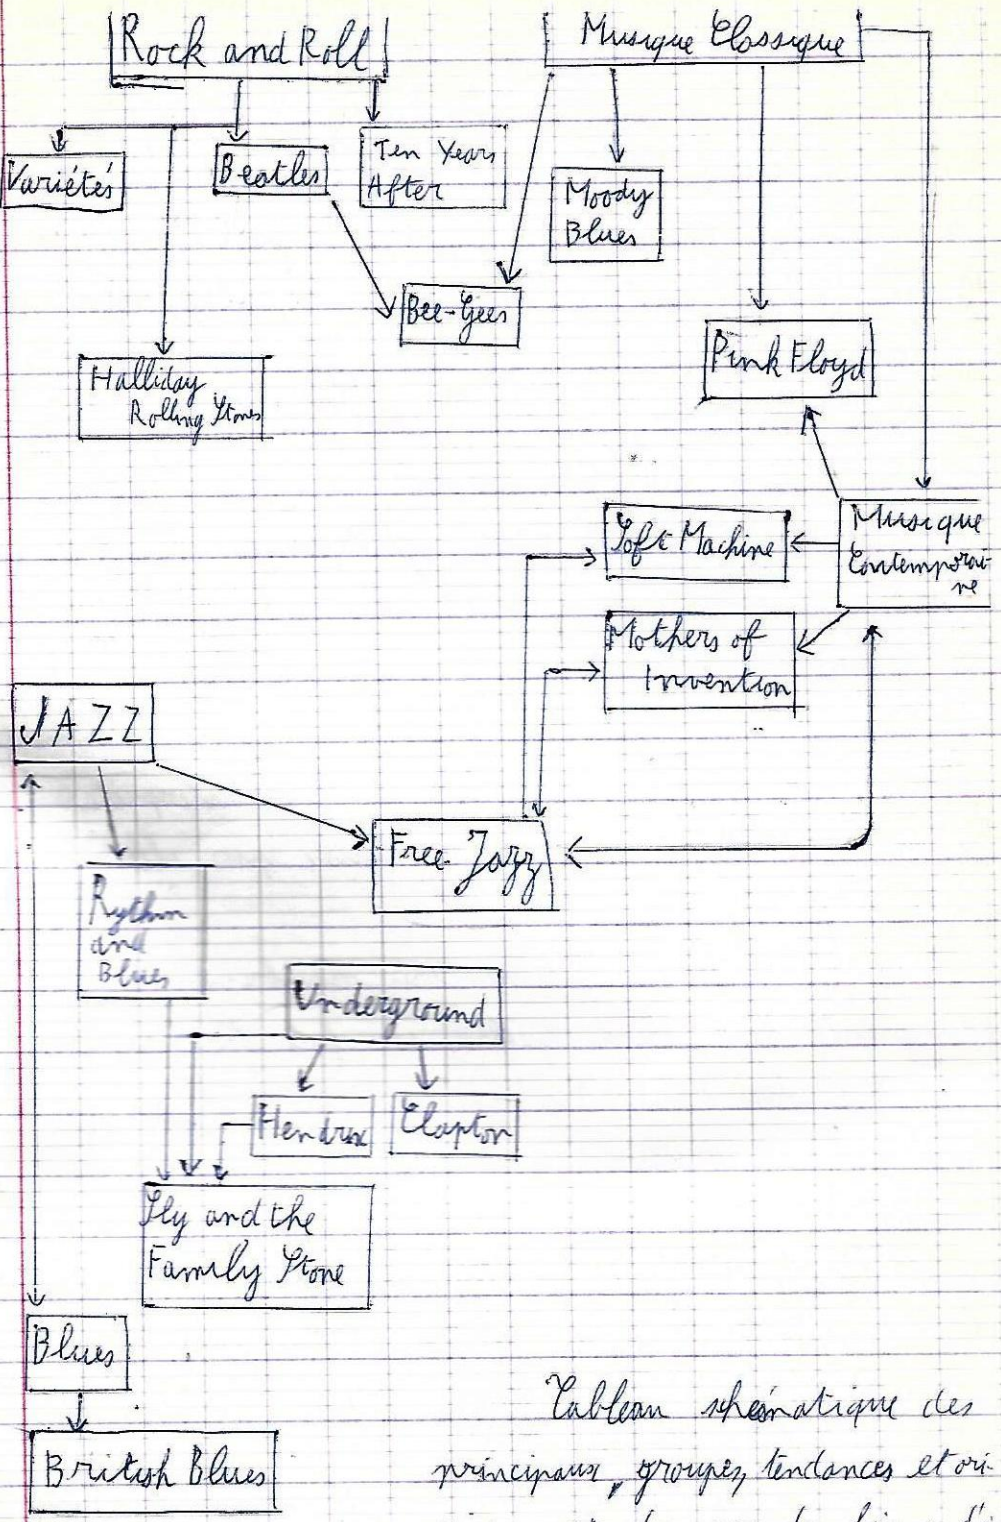 Rock and Roll
Musique Classique
Variétés
Beatles
Ten Years
After
Moody
Blues
Bee-Gees
Pink Floyd
Halliday
Rolling Stones
Soft Machine
Musique
Contemporai-
ne
Mothers of
Invention
JAZZ
Free-Jazz
Rythm
and
Blues
Underground
Hendrix
Clapton
Sly and the
Family Stone
Blues
British Blues
Tableau schématique des
principaux, groupes, tendances et ori-